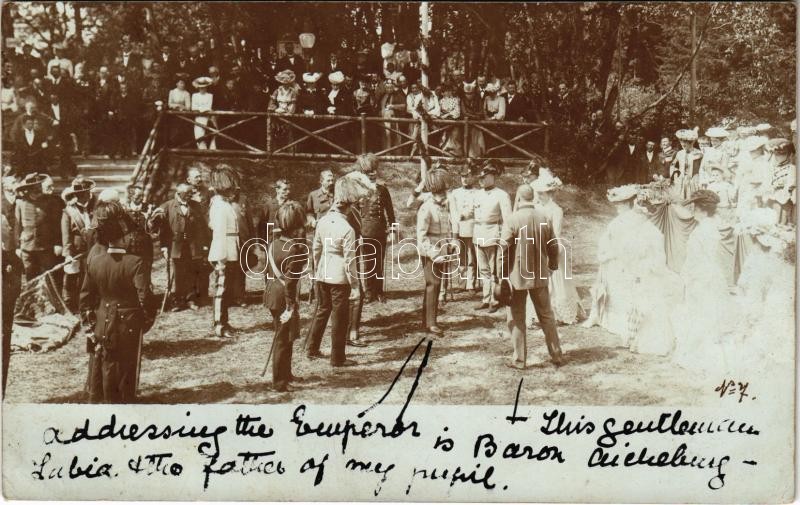 darabanth
No 7.
+ This gentleman
addressing the Emperor is Baron Aichelburg-
Labia. & the father of my pupil.